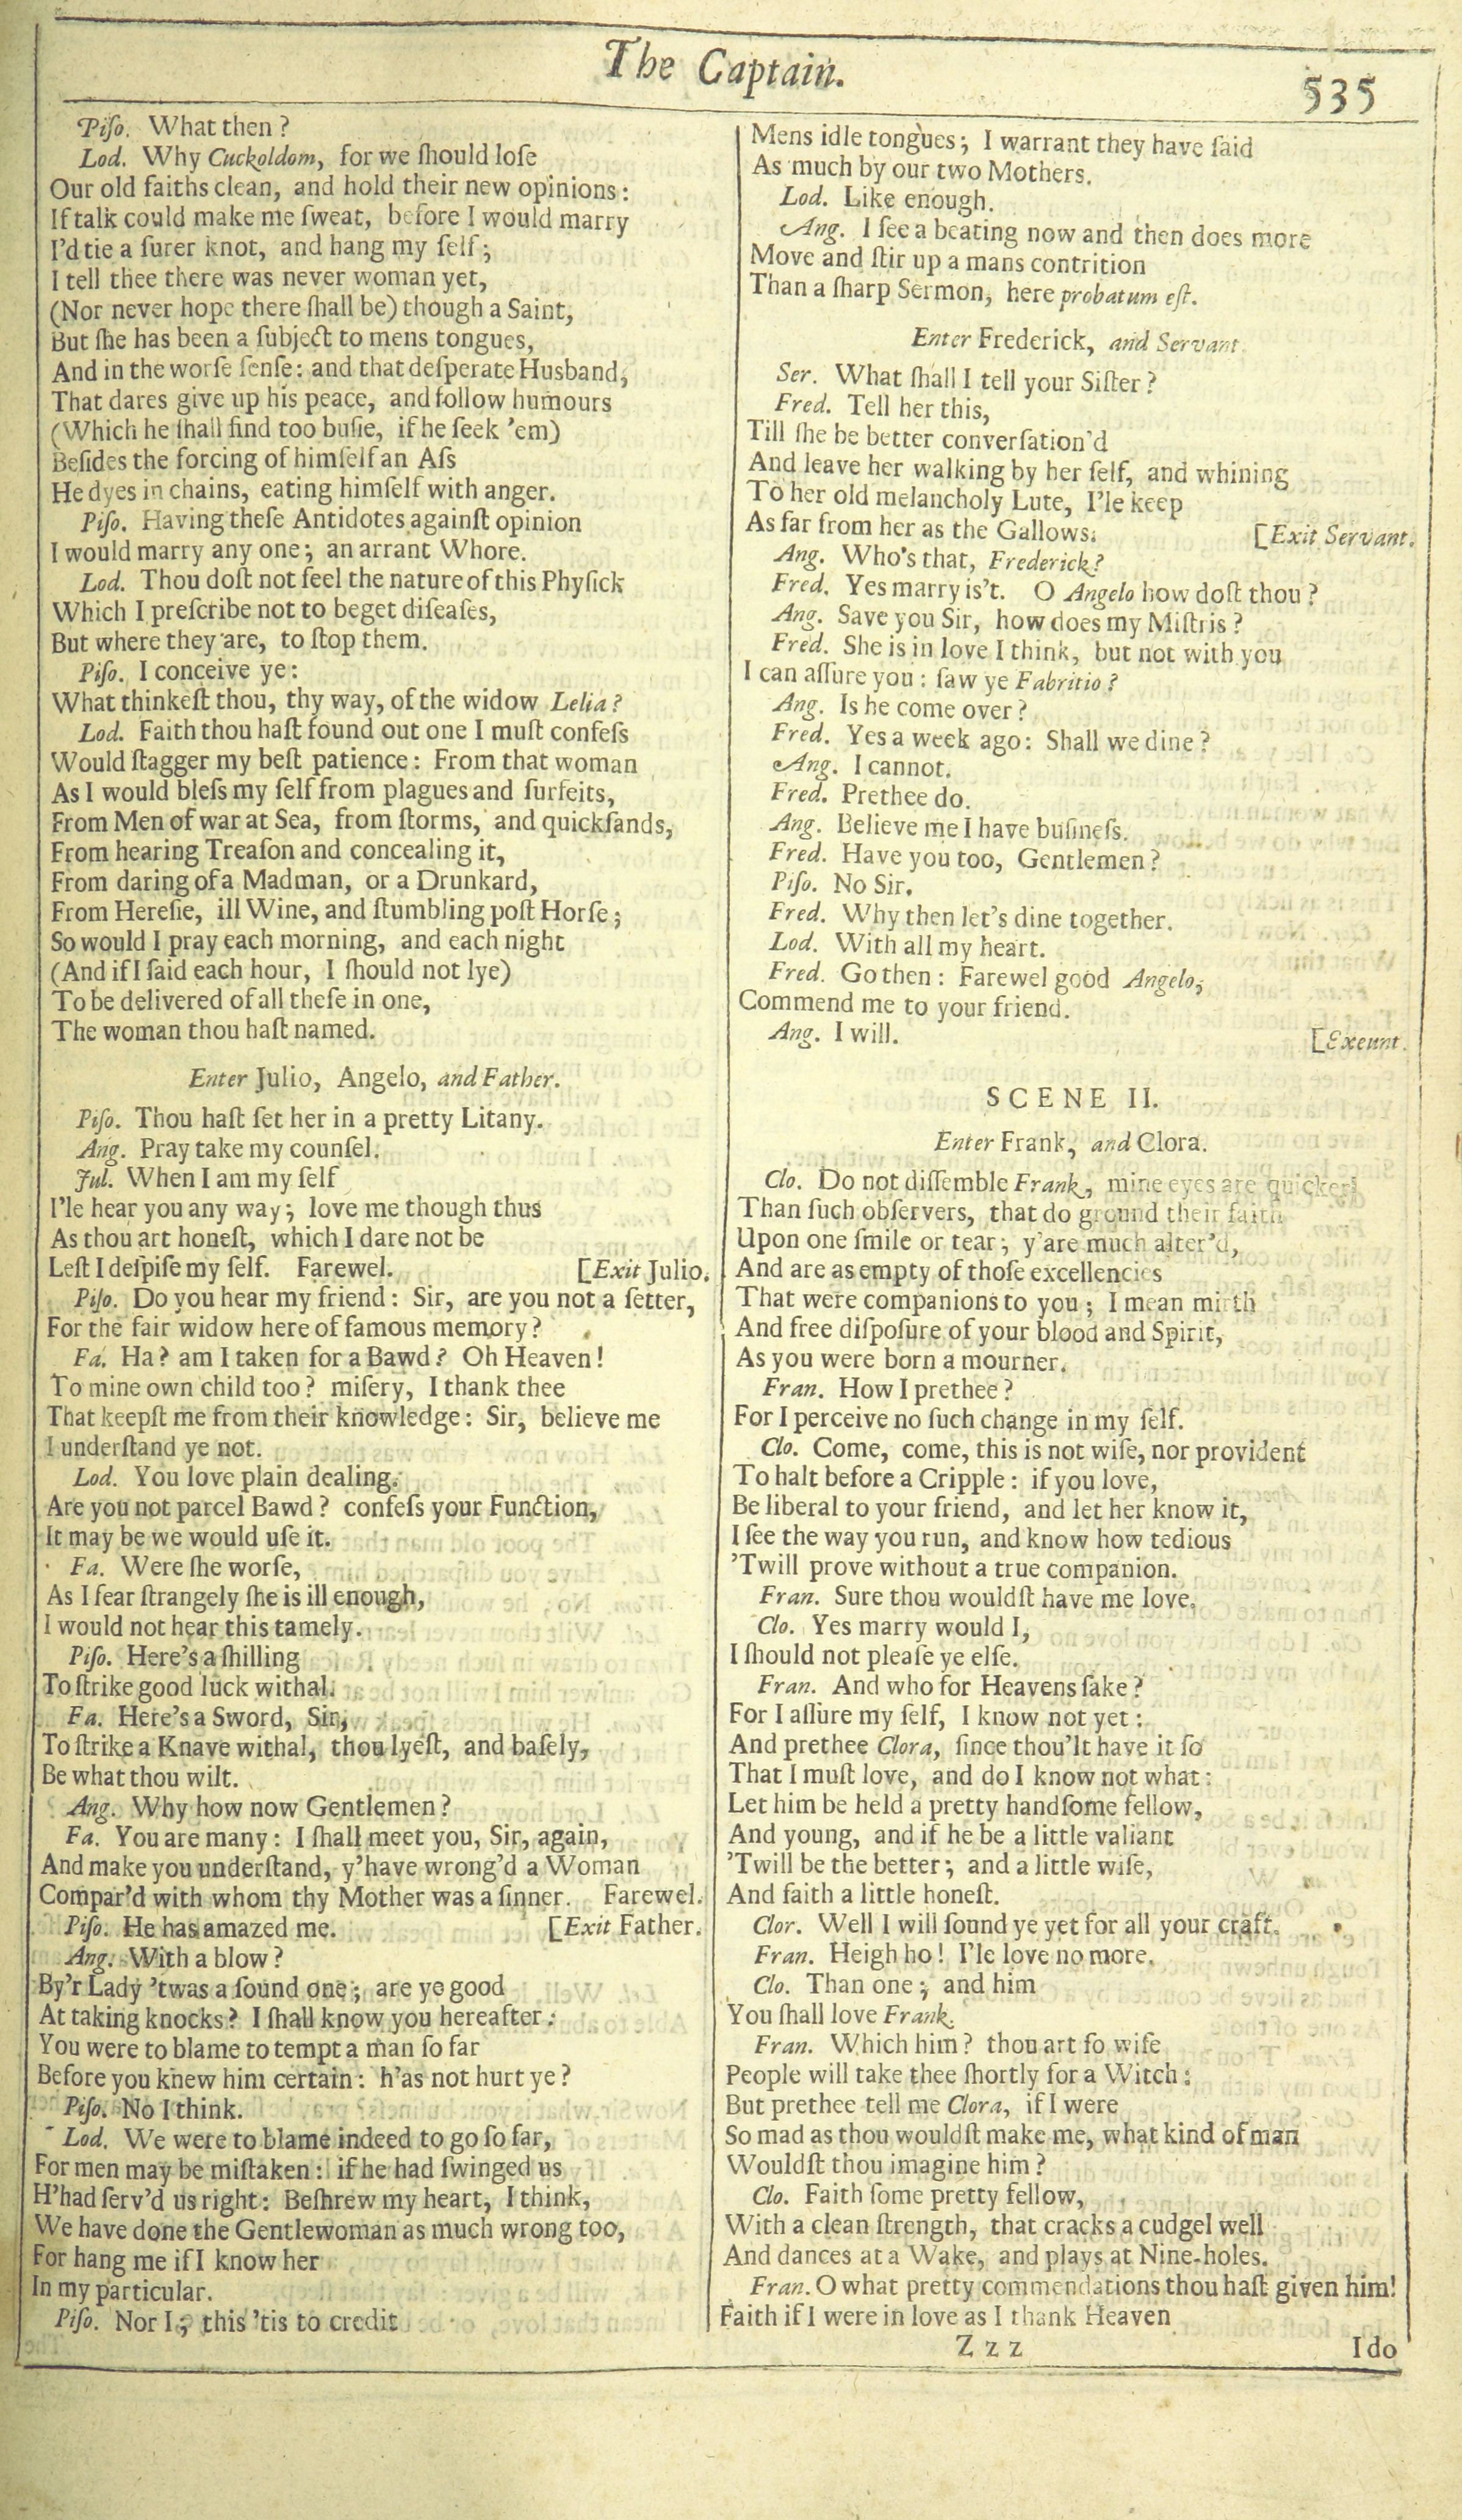 The Captain.
535
Piſo. What then?
Lod. Why Cuckoldom, for we ſhould loſe
Our old faiths clean, and hold their new opinions:
If talk could make me ſweat, before I would marry
I'd tie a ſurer knot, and hang my ſelf;
I tell thee there was never woman yet,
(Nor never hope there ſhall be) though a Saint,
But ſhe has been a ſubject to mens tongues,
And in the worſe ſenſe: and that deſperate Husband,
That dares give up his peace, and follow humours
(Which he ſhall find too buſie, if he ſeek 'em)
Beſides the forcing of himſelf an Aſs
He dyes in chains, eating himſelf with anger.
Piſo. Having theſe Antidotes againſt opinion
I would marry any one; an arrant Whore.
Lod. Thou doſt not feel the nature of this Phyſick
Which I preſcribe not to beget diſeaſes,
But where they are, to ſtop them.
Piſo. I conceive ye:
What thinkeſt thou, thy way, of the widow Lelia?
Lod. Faith thou haſt found out one I muſt confeſs
Would ſtagger my beſt patience: From that woman
As I would bleſs my ſelf from plagues and ſurfeits,
From Men of war at Sea, from ſtorms, and quickſands,
From hearing Treaſon and concealing it,
From daring of a Madman, or a Drunkard,
From Hereſie, ill Wine, and ſtumbling poſt Horſe;
So would I pray each morning, and each night
(And if I ſaid each hour, I ſhould not lye)
To be delivered of all theſe in one,
The woman thou haſt named.
Enter Julio, Angelo, and Father.
Piſo. Thou haſt ſet her in a pretty Litany.
Ang. Pray take my counſel.
Jul. When I am my ſelf
I'le hear you any way; love me though thus
As thou art honeſt, which I dare not be
Leſt I deſpiſe my ſelf. Farewel. [Exit Julio.
Piſo. Do you hear my friend: Sir, are you not a ſetter,
For the fair widow here of famous memory?
Fa. Ha? am I taken for a Bawd? Oh Heaven!
To mine own child too? miſery, I thank thee
That keepſt me from their knowledge: Sir, believe me
I underſtand ye not.
Lod. You love plain dealing.
Are you not parcel Bawd? confeſs your Function,
It may be we would uſe it.
Fa. Were ſhe worſe,
As I fear ſtrangely ſhe is ill enough,
I would not hear this tamely.
Piſo. Here's a ſhilling
To ſtrike good luck withal.
Fa. Here's a Sword, Sir,
To ſtrike a Knave withal, thou lyeſt, and baſely,
Be what thou wilt.
Ang. Why how now Gentlemen?
Fa. You are many: I ſhall meet you, Sir, again,
And make you underſtand, y'have wrong'd a Woman
Compar'd with whom thy Mother was a ſinner. Farewel.
Piſo. He has amazed me. [Exit Father.
Ang. With a blow?
By'r Lady 'twas a ſound one; are ye good
At taking knocks? I ſhall know you hereafter:
You were to blame to tempt a man ſo far
Before you knew him certain: h'as not hurt ye?
Piſo. No I think.
Lod. We were to blame indeed to go ſo far,
For men may be miſtaken: if he had ſwinged us
H'had ſerv'd us right: Beſhrew my heart, I think,
We have done the Gentlewoman as much wrong too,
For hang me if I know her
In my particular.
Piſo. Nor I; this 'tis to credit
Mens idle tongues; I warrant they have ſaid
As much by our two Mothers.
Lod. Like enough.
Ang. I ſee a beating now and then does more
Move and ſtir up a mans contrition
Than a ſharp Sermon, here probatum eſt.
Enter Frederick, and Servant
Ser. What ſhall I tell your Siſter?
Fred. Tell her this,
Till ſhe be better converſation'd
And leave her walking by her ſelf, and whining
To her old melancholy Lute, I'le keep
As far from her as the Gallows. [Exit Servant.
Ang. Who's that, Frederick?
Fred. Yes marry is't. O Angelo how doſt thou?
Ang. Save you Sir, how does my Miſtris?
Fred. She is in love I think, but not with you
I can aſſure you: ſaw ye Fabritio?
Ang. Is he come over?
Fred. Yes a week ago: Shall we dine?
Ang. I cannot.
Fred. Prethee do.
Ang. Believe me I have buſineſs.
Fred. Have you too, Gentlemen?
Piſo. No Sir.
Fred. Why then let's dine together.
Lod. With all my heart.
Fred. Go then: Farewel good Angelo,
Commend me to your friend.
Ang. I will. [Exeunt.
SCENE II.
Enter Frank, and Clora.
Clo. Do not diſſemble Frank, mine eyes are quicker
Than ſuch obſervers, that do ground their faith
Upon one ſmile or tear; y'are much alter'd,
And are as empty of thoſe excellencies
That were companions to you; I mean mirth
And free diſpoſure of your blood and Spirit,
As you were born a mourner.
Fran. How I prethee?
For I perceive no ſuch change in my ſelf.
Clo. Come, come, this is not wiſe, nor provident
To halt before a Cripple: if you love,
Be liberal to your friend, and let her know it,
I ſee the way you run, and know how tedious
'Twill prove without a true companion.
Fran. Sure thou wouldſt have me love.
Clo. Yes marry would I,
I ſhould not pleaſe ye elſe.
Fran. And who for Heavens ſake?
For I aſſure my ſelf, I know not yet:
And prethee Clora, ſince thou'lt have it ſo
That I muſt love, and do I know not what:
Let him be held a pretty handſome fellow,
And young, and if he be a little valiant
'Twill be the better; and a little wiſe,
And faith a little honeſt.
Clor. Well I will ſound ye yet for all your craft.
Fran. Heigh ho! I'le love no more.
Clo. Than one; and him
You ſhall love Frank.
Fran. Which him? thou art ſo wiſe
People will take thee ſhortly for a Witch:
But prethee tell me Clora, if I were
So mad as thou wouldſt make me, what kind of man
Wouldſt thou imagine him?
Clo. Faith ſome pretty fellow,
With a clean ſtrength, that cracks a cudgel well
And dances at a Wake, and plays at Nine-holes.
Fran. O what pretty commendations thou haſt given him!
Faith if I were in love as I thank Heaven
Z z z
I do